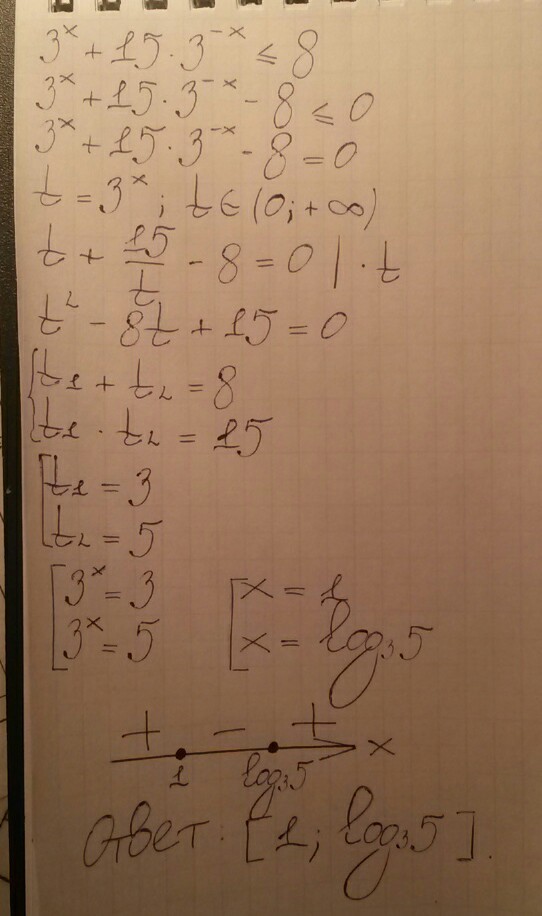 3ˣ + 15 · 3⁻ˣ ≤ 8
3ˣ + 15 · 3⁻ˣ - 8 ≤ 0
3ˣ + 15 · 3⁻ˣ - 8 = 0
t = 3ˣ; t ∈ (0; +∞)
t + 15/t - 8 = 0 | · t
t² - 8t + 15 = 0
{t₁ + t₂ = 8
{t₁ · t₂ = 15
[t₁ = 3
[t₂ = 5
[3ˣ = 3 [x = 1
[3ˣ = 5 [x = log₃5
+ - +
1 log₃5 x
Ответ: [1; log₃5].